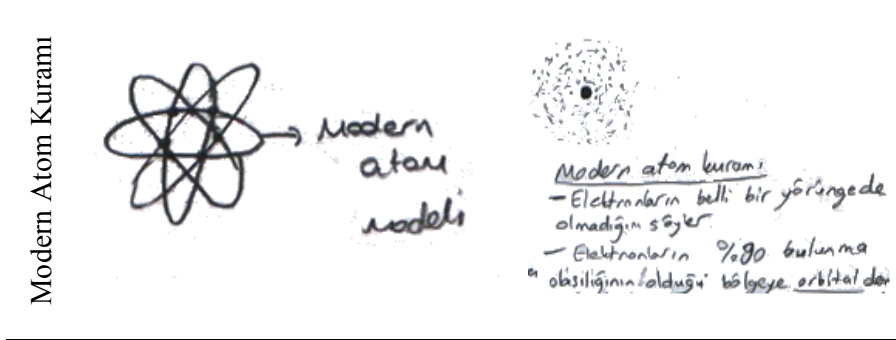 Modern Atom Kuramı
Modern
atom
modeli
Modern atom kuramı
- Elektronların belli bir yörüngede
olmadığını söyler.
- Elektronların %90 bulunma
olasılığının olduğu bölgeye orbital der